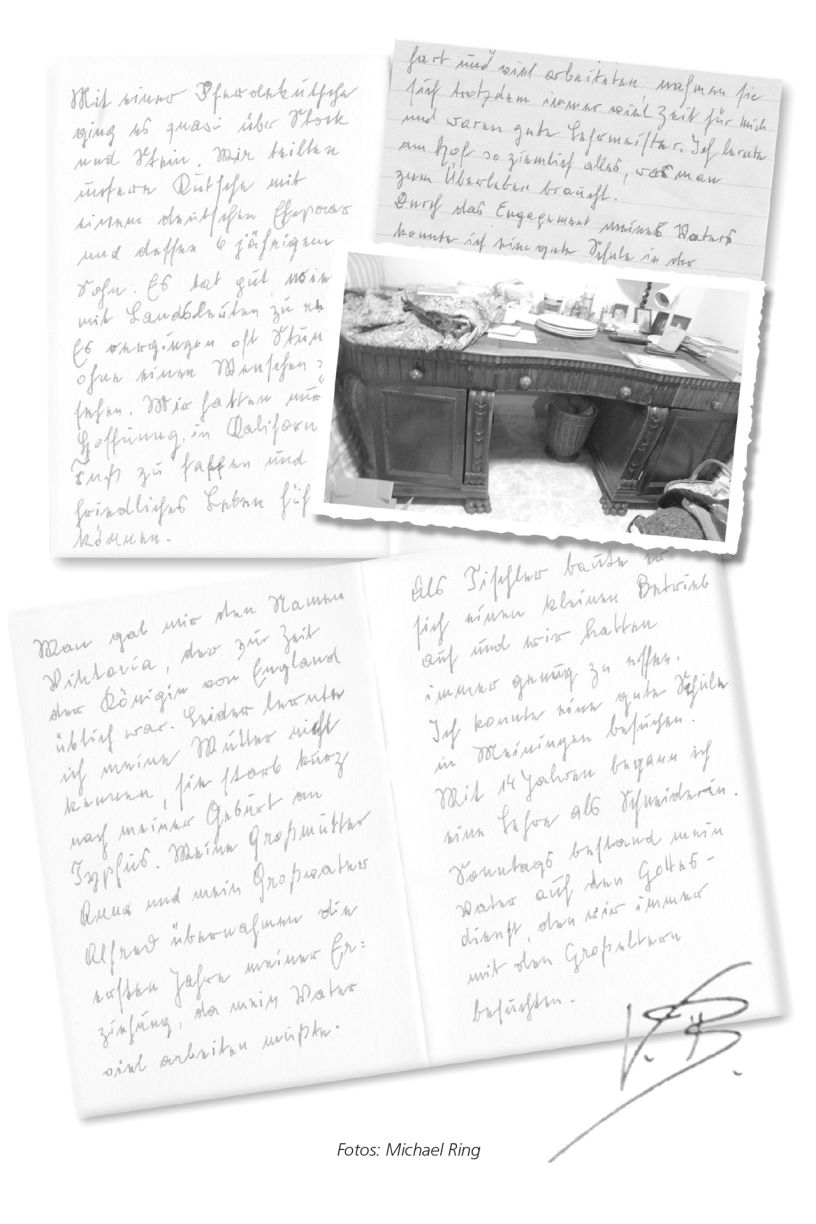 Mit einer Pferdekutsche
ging es quasi über Stock
und Stein. Wir teilten
unsere Kutsche mit
einem deutschen Ehepaar
und dessen 6 jährigem
Sohn. Es tat gut, wie
mit Landsleuten zu
Es vergingen oft Stun
ohne einen Menschen
sehen. Wir hatten nur
Hoffnung, in Kaliforn
Fuß zu fassen und
friedliches Leben füh
können.
hart und viel arbeiteten nahmen sie
sich trotzdem immer viel Zeit für mich
und waren gute Lehrmeister. Ich lernte
am Hof so ziemlich alles, was man
zum Überleben braucht.
Durch das Engagement meines Vaters
konnte ich eine gute Schule in der
Man gab mir den Namen
Viktoria, der zur Zeit
der Königin von England
üblich war. Leider lernte
ich meine Mutter nicht
kennen, sie starb kurz
nach meiner Geburt an
Typhus. Meine Großmutter
Anna und mein Großvater
Alfred übernahmen die
ersten Jahre meiner Er=
ziehung, da mein Vater
viel arbeiten mußte.
Als Tischler baute er
sich einen kleinen Betrieb
auf und wir hatten
immer genug zu essen.
Ich konnte eine gute Schule
in Meiningen besuchen.
Mit 14 Jahren begann ich
eine Lehre als Schneiderin.
Sonntags bestand mein
Vater auf den Gottes-
dienst, den wir immer
mit den Großeltern
besuchten.
V. B.
Fotos: Michael Ring